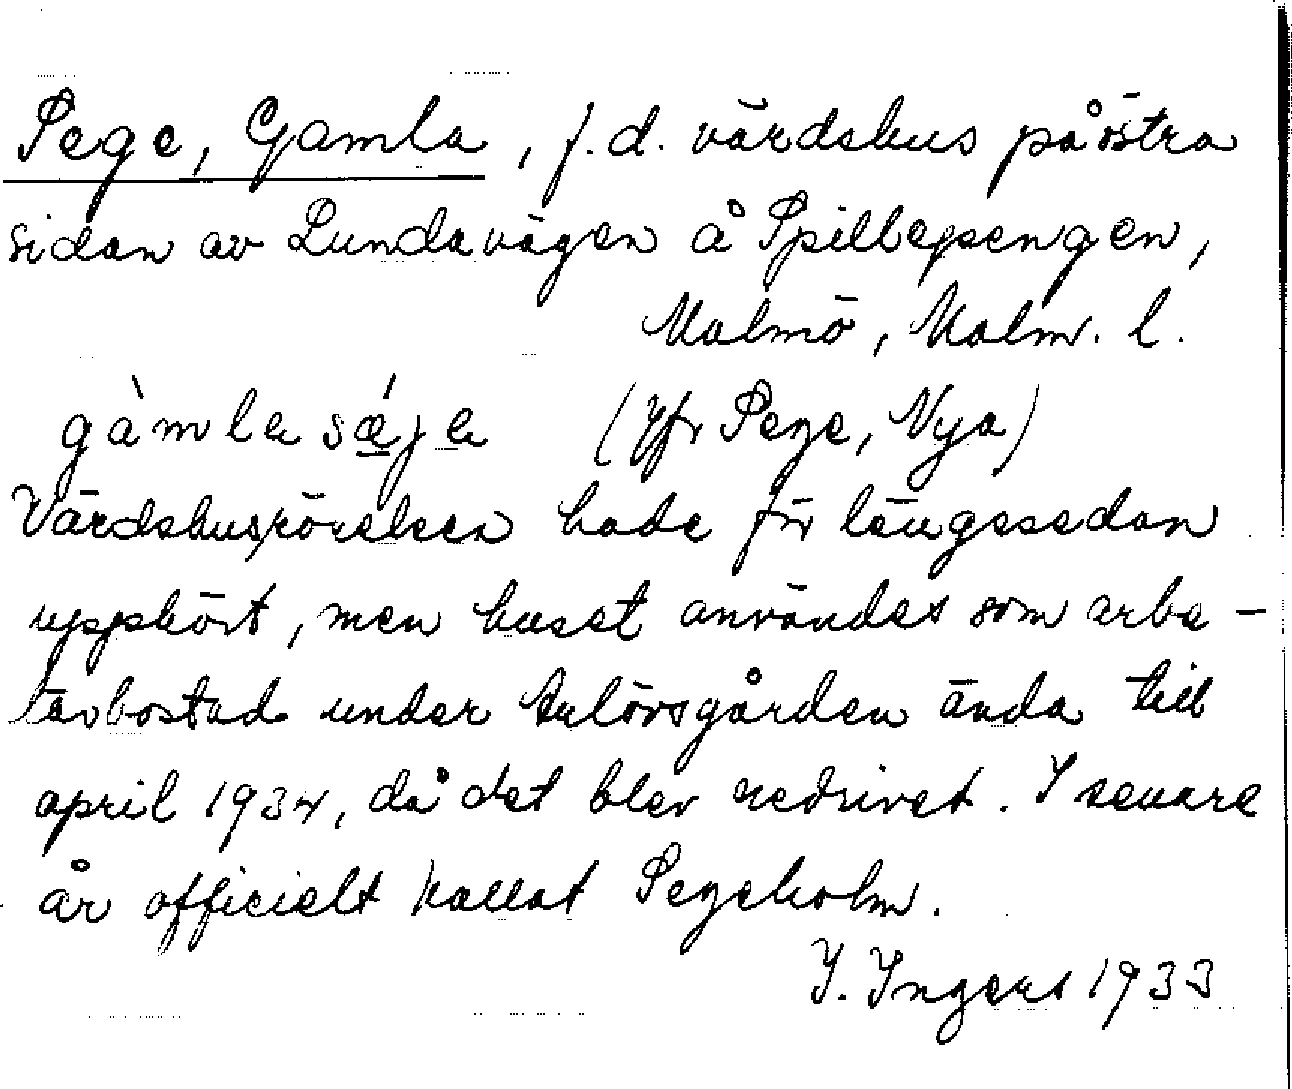 Sege, Gamla, f.d. värdshus på östra
sidan av Lundavägen å Spillepengen,
Malmö, Malm. l.
gàmla sǽja (Jfr Sege, Nya)
Värdshusrörelsen hade för längesedan
upphört, men huset användes som arbe-
tarbostad under Arlövsgården ända till
april 1934, då det blev nedrivet. I senare
år officielt kallat Segeholm.
I. Ingers 1933